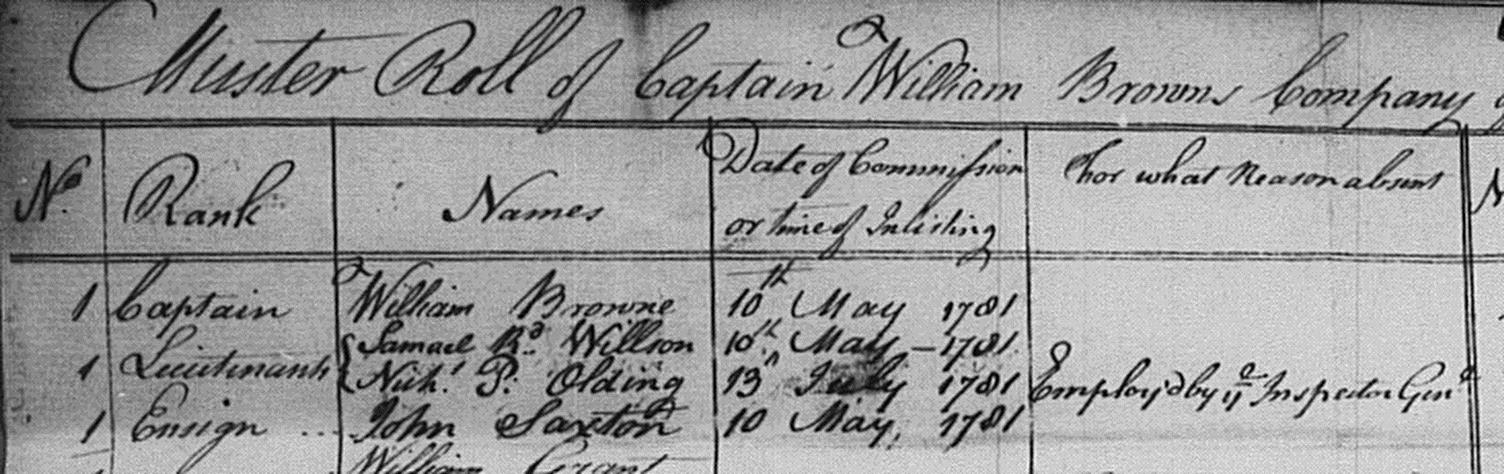 Muster Roll of Captain William Browns Company
No. Rank Names Date of Commission or time of Inlisting For what Reason absent
1 Captain William Browne 10th May 1781
1 Lieutenants { Samuel Rd. Willson 10th May – 1781
{ Nichs. P. Olding 13th July 1781 Employ'd by ye Inspector Genl
1 Ensign ... John Saxton 10 May, 1781
William Grant